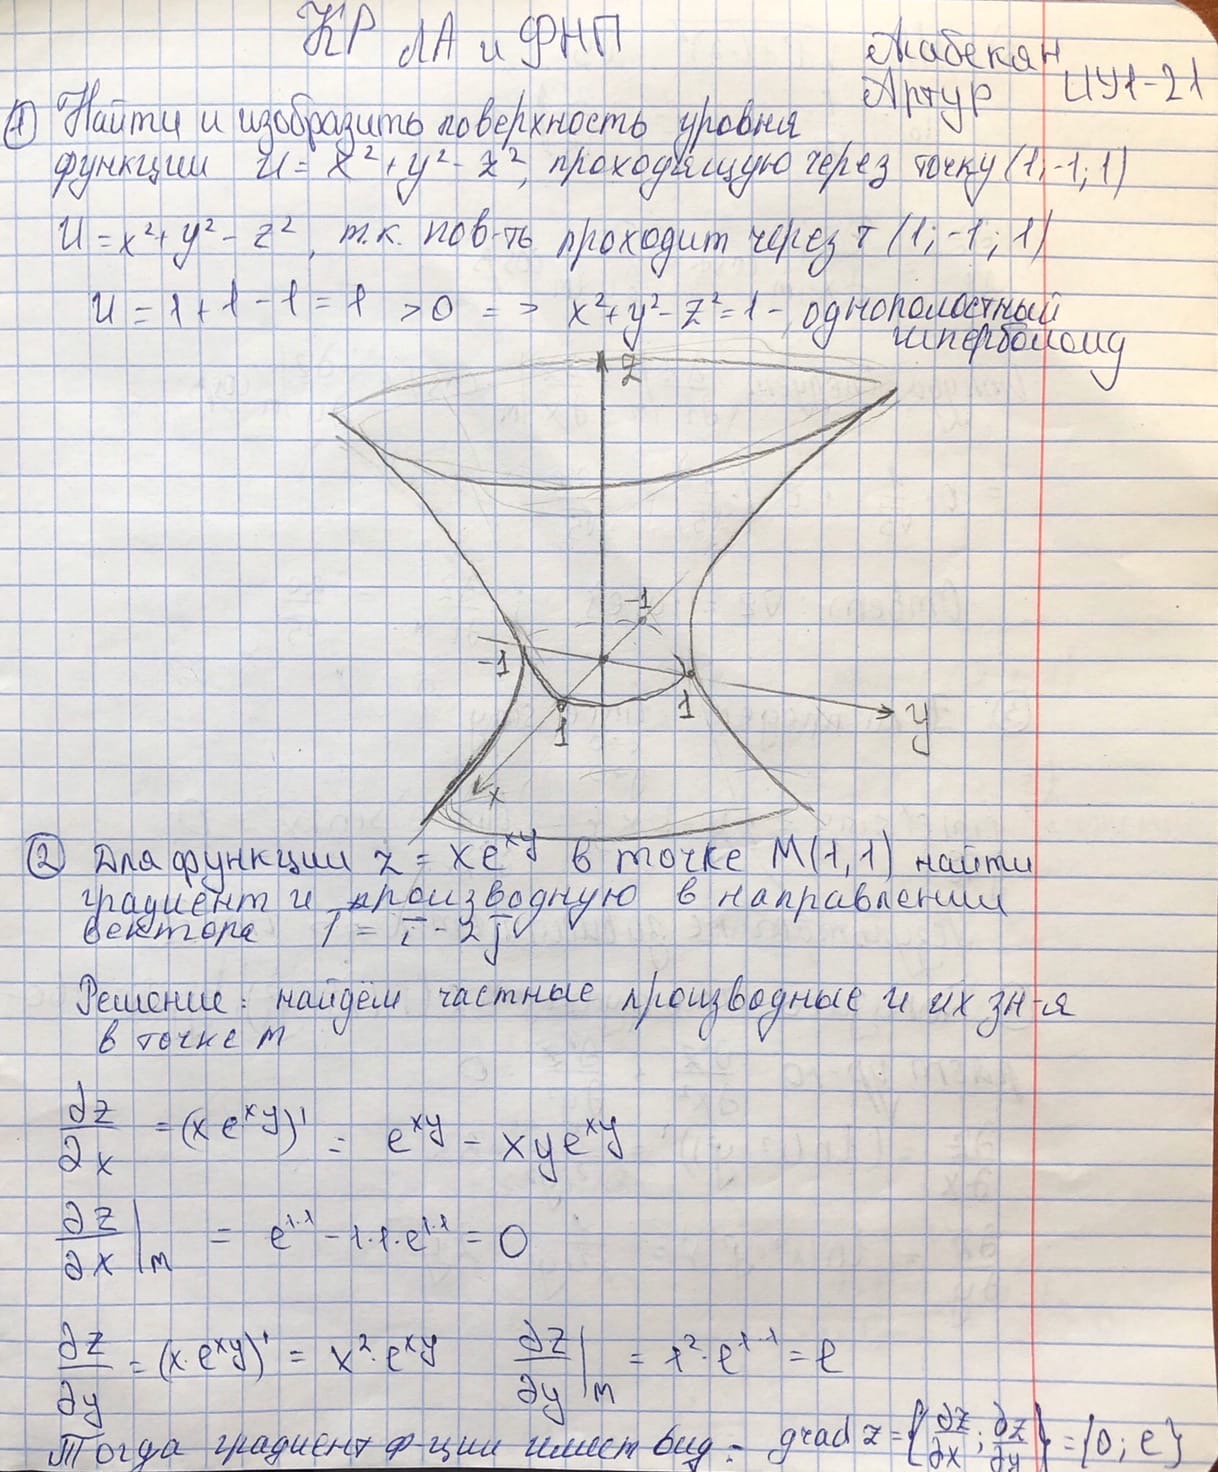 КР ЛА и ФНП
Жабекян
Артур ИУ1-21
① Найти и изобразить поверхность уровня
функции U = x² + y² - z², проходящую через точку (1;-1;1)
U = x² + y² - z², т.к. пов-ть проходит через т (1; -1; 1)
U = 1 + 1 - 1 = 1 > 0 => x² + y² - z² = 1 - однополостный
гиперболоид
z
-1
-1
1
1
y
x
② Для функции z = xe^{xy} в точке M(1,1) найти
градиент и производную в направлении
вектора l̅ = i̅ - 2j̅
Решение: найдём частные производные и их зн-я
в точке m
∂z/∂x = (x e^{xy})' = e^{xy} - xye^{xy}
∂z/∂x|_m = e^{1·1} - 1·1·e^{1·1} = 0
∂z/∂y = (x·e^{xy})' = x²·e^{xy} ∂z/∂y|_m = 1²·e^{1·1} = e
Тогда градиент ф-ции имеет вид: grad z = {∂z/∂x; ∂z/∂y} = {0; e}